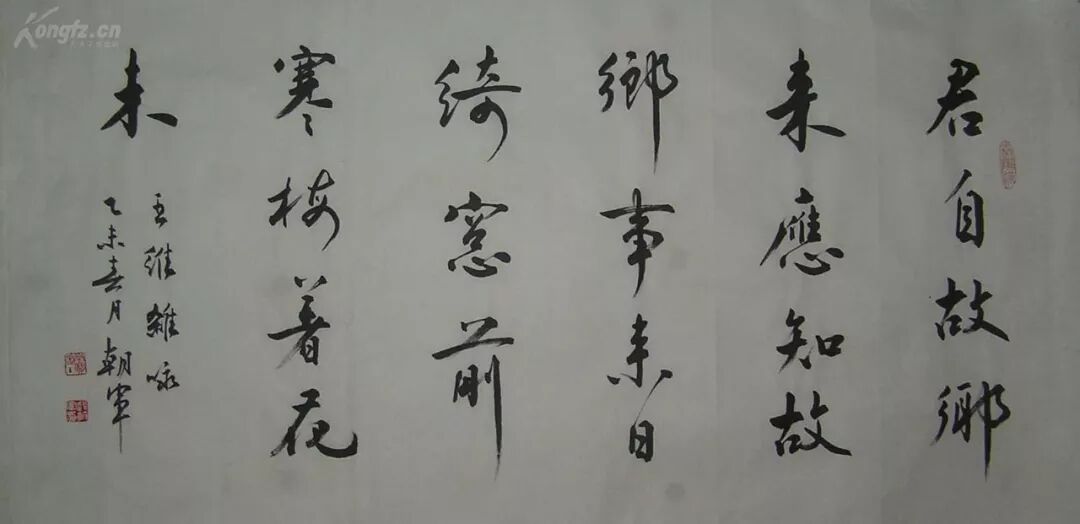 君自故鄉
来應知故
鄉事来日
綺窓前
寒梅着花
未
王維雜咏
乙未春月朝軍
Kongfz.cn